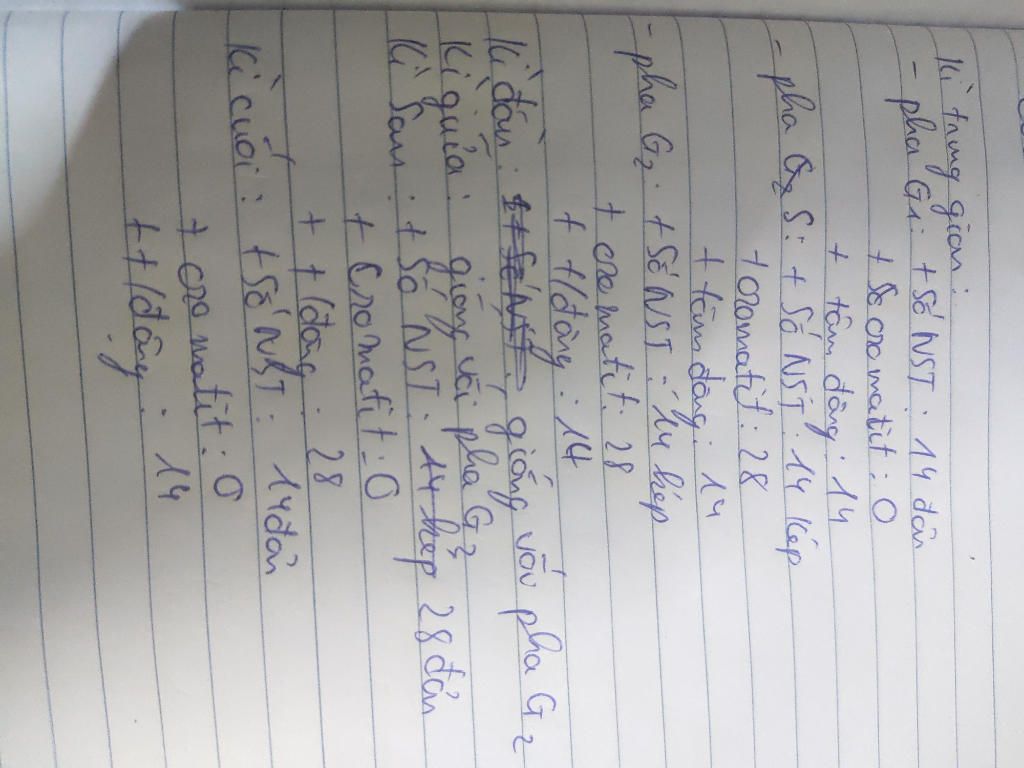 Kì trung gian:
- pha G1: + Số NST: 14 đơn
+ Số cromatit: 0
+ tâm động: 14
- pha S: + Số NST: 14 kép
+ cromatit: 28
+ tâm động: 14
- pha G2: + Số NST: 14 kép
+ cromatit: 28
+ t/động: 14
Kì đầu: giống với pha G2
Kì giữa: giống với pha G2
Kì Sau: + Số NST: 28 đơn
+ Cromatit: 0
+ t/động: 28
Kì cuối: + Số NST: 14 đơn
+ cromatit: 0
+ t/động: 14